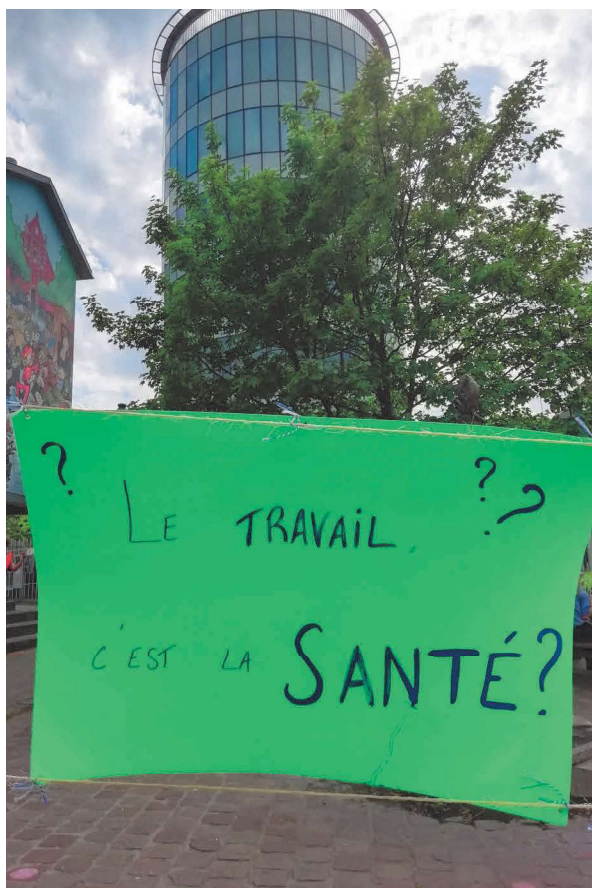 ? ? ?
LE TRAVAIL
C'EST LA SANTÉ?